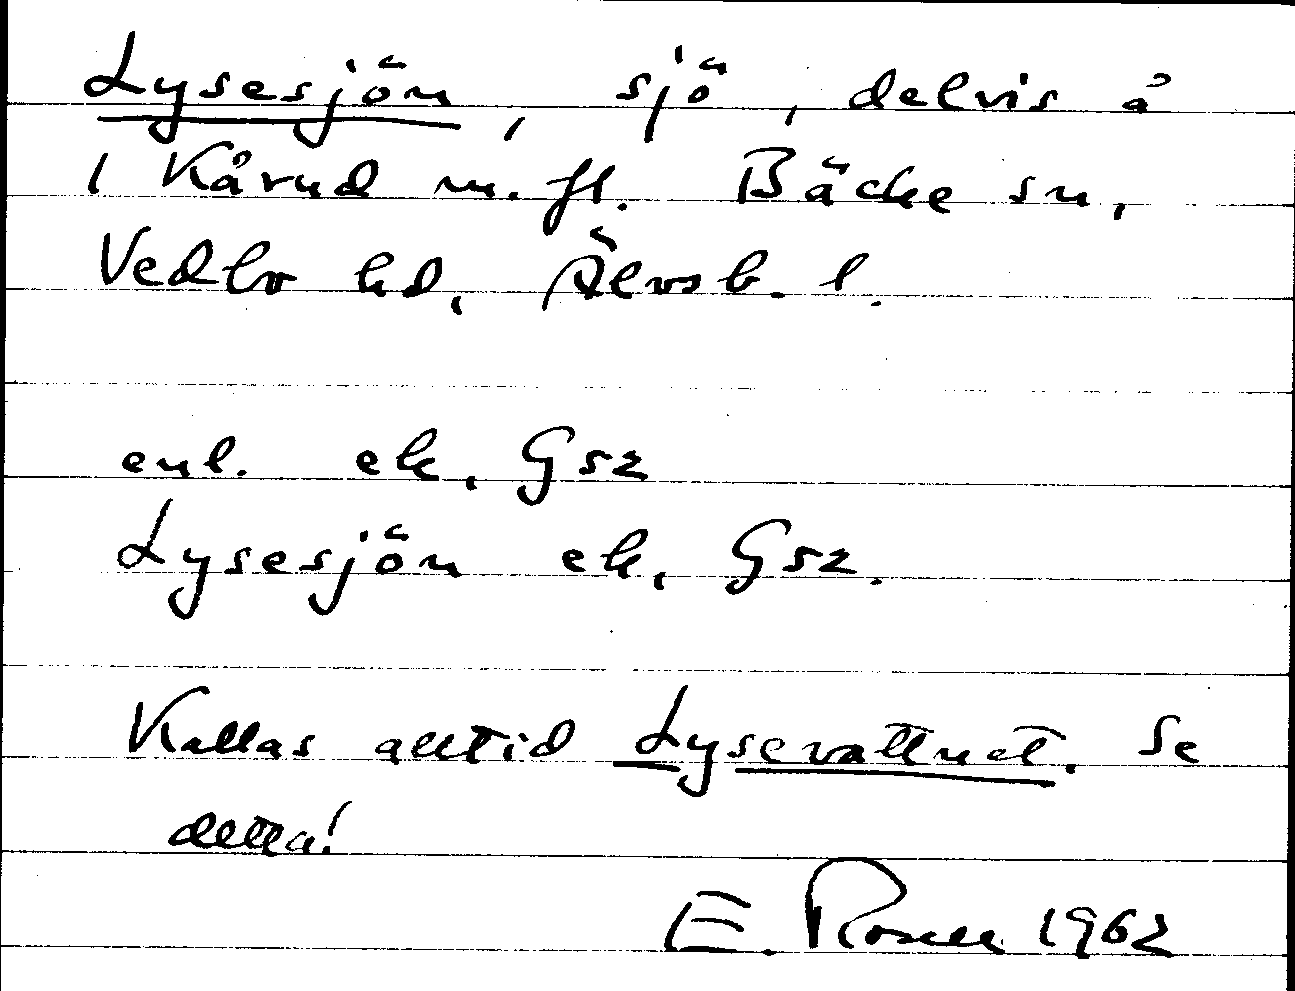 Lysesjön, sjö, delvis å
1 Kårud m. fl. Bäcke sn,
Vedbo hd, Älvsb. l.
enl. ek. Gsz
Lysesjön ek. Gsz.
Kallas alltid Lysevattnet. Se
detta!
E. Rosell 1962